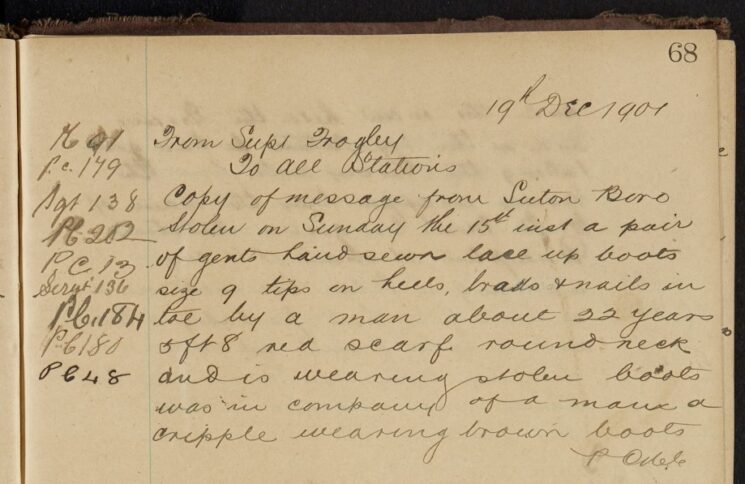 68
19th Dec 1901
From Supt Frogley
To All Stations
Copy of message from Luton Boro
Stolen on Sunday the 15th inst a pair
of gents hand sewn lace up boots
size 9 tips on heels, brads & nails in
toe by a man about 22 years
5ft8 red scarf round neck
and is wearing stolen boots
was in company of a man a
cripple wearing brown boots
P.C. 179
Sgt 138
PC 202
P.C. 13
Sergt 136
P.C. 184
PC 180
PC 48